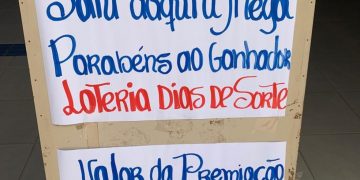 Saiu daqui a Mega
Parabéns ao Ganhador
Loteria Dias de Sorte
Valor da Premiação